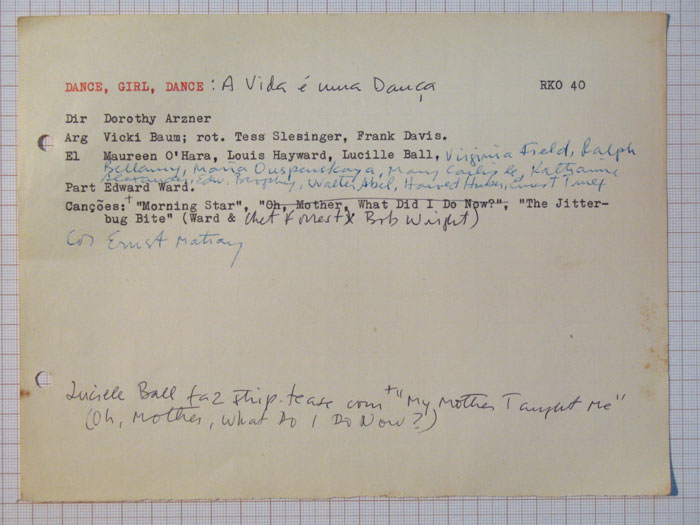 DANCE, GIRL, DANCE : A Vida é uma Dança RKO 40
Dir Dorothy Arzner
Arg Vicki Baum; rot. Tess Slesinger, Frank Davis.
El Maureen O'Hara, Louis Hayward, Lucille Ball, Virginia Field, Ralph
Bellamy, Maria Ouspenskaya, Mary Carlisle, Katharine
Alexander, Edw. Brophy, Walter Abel, Harold Huber, Ernest Truex
Part Edward Ward.
Canções: + "Morning Star", "Oh, Mother, What Did I Do Now?", "The Jitter-
bug Bite" (Ward & Chet Forrest & Bob Wright)
Cor Ernst Matray
Lucille Ball faz strip-tease com + "My Mother Taught Me"
(Oh, Mother, What Do I Do Now?)